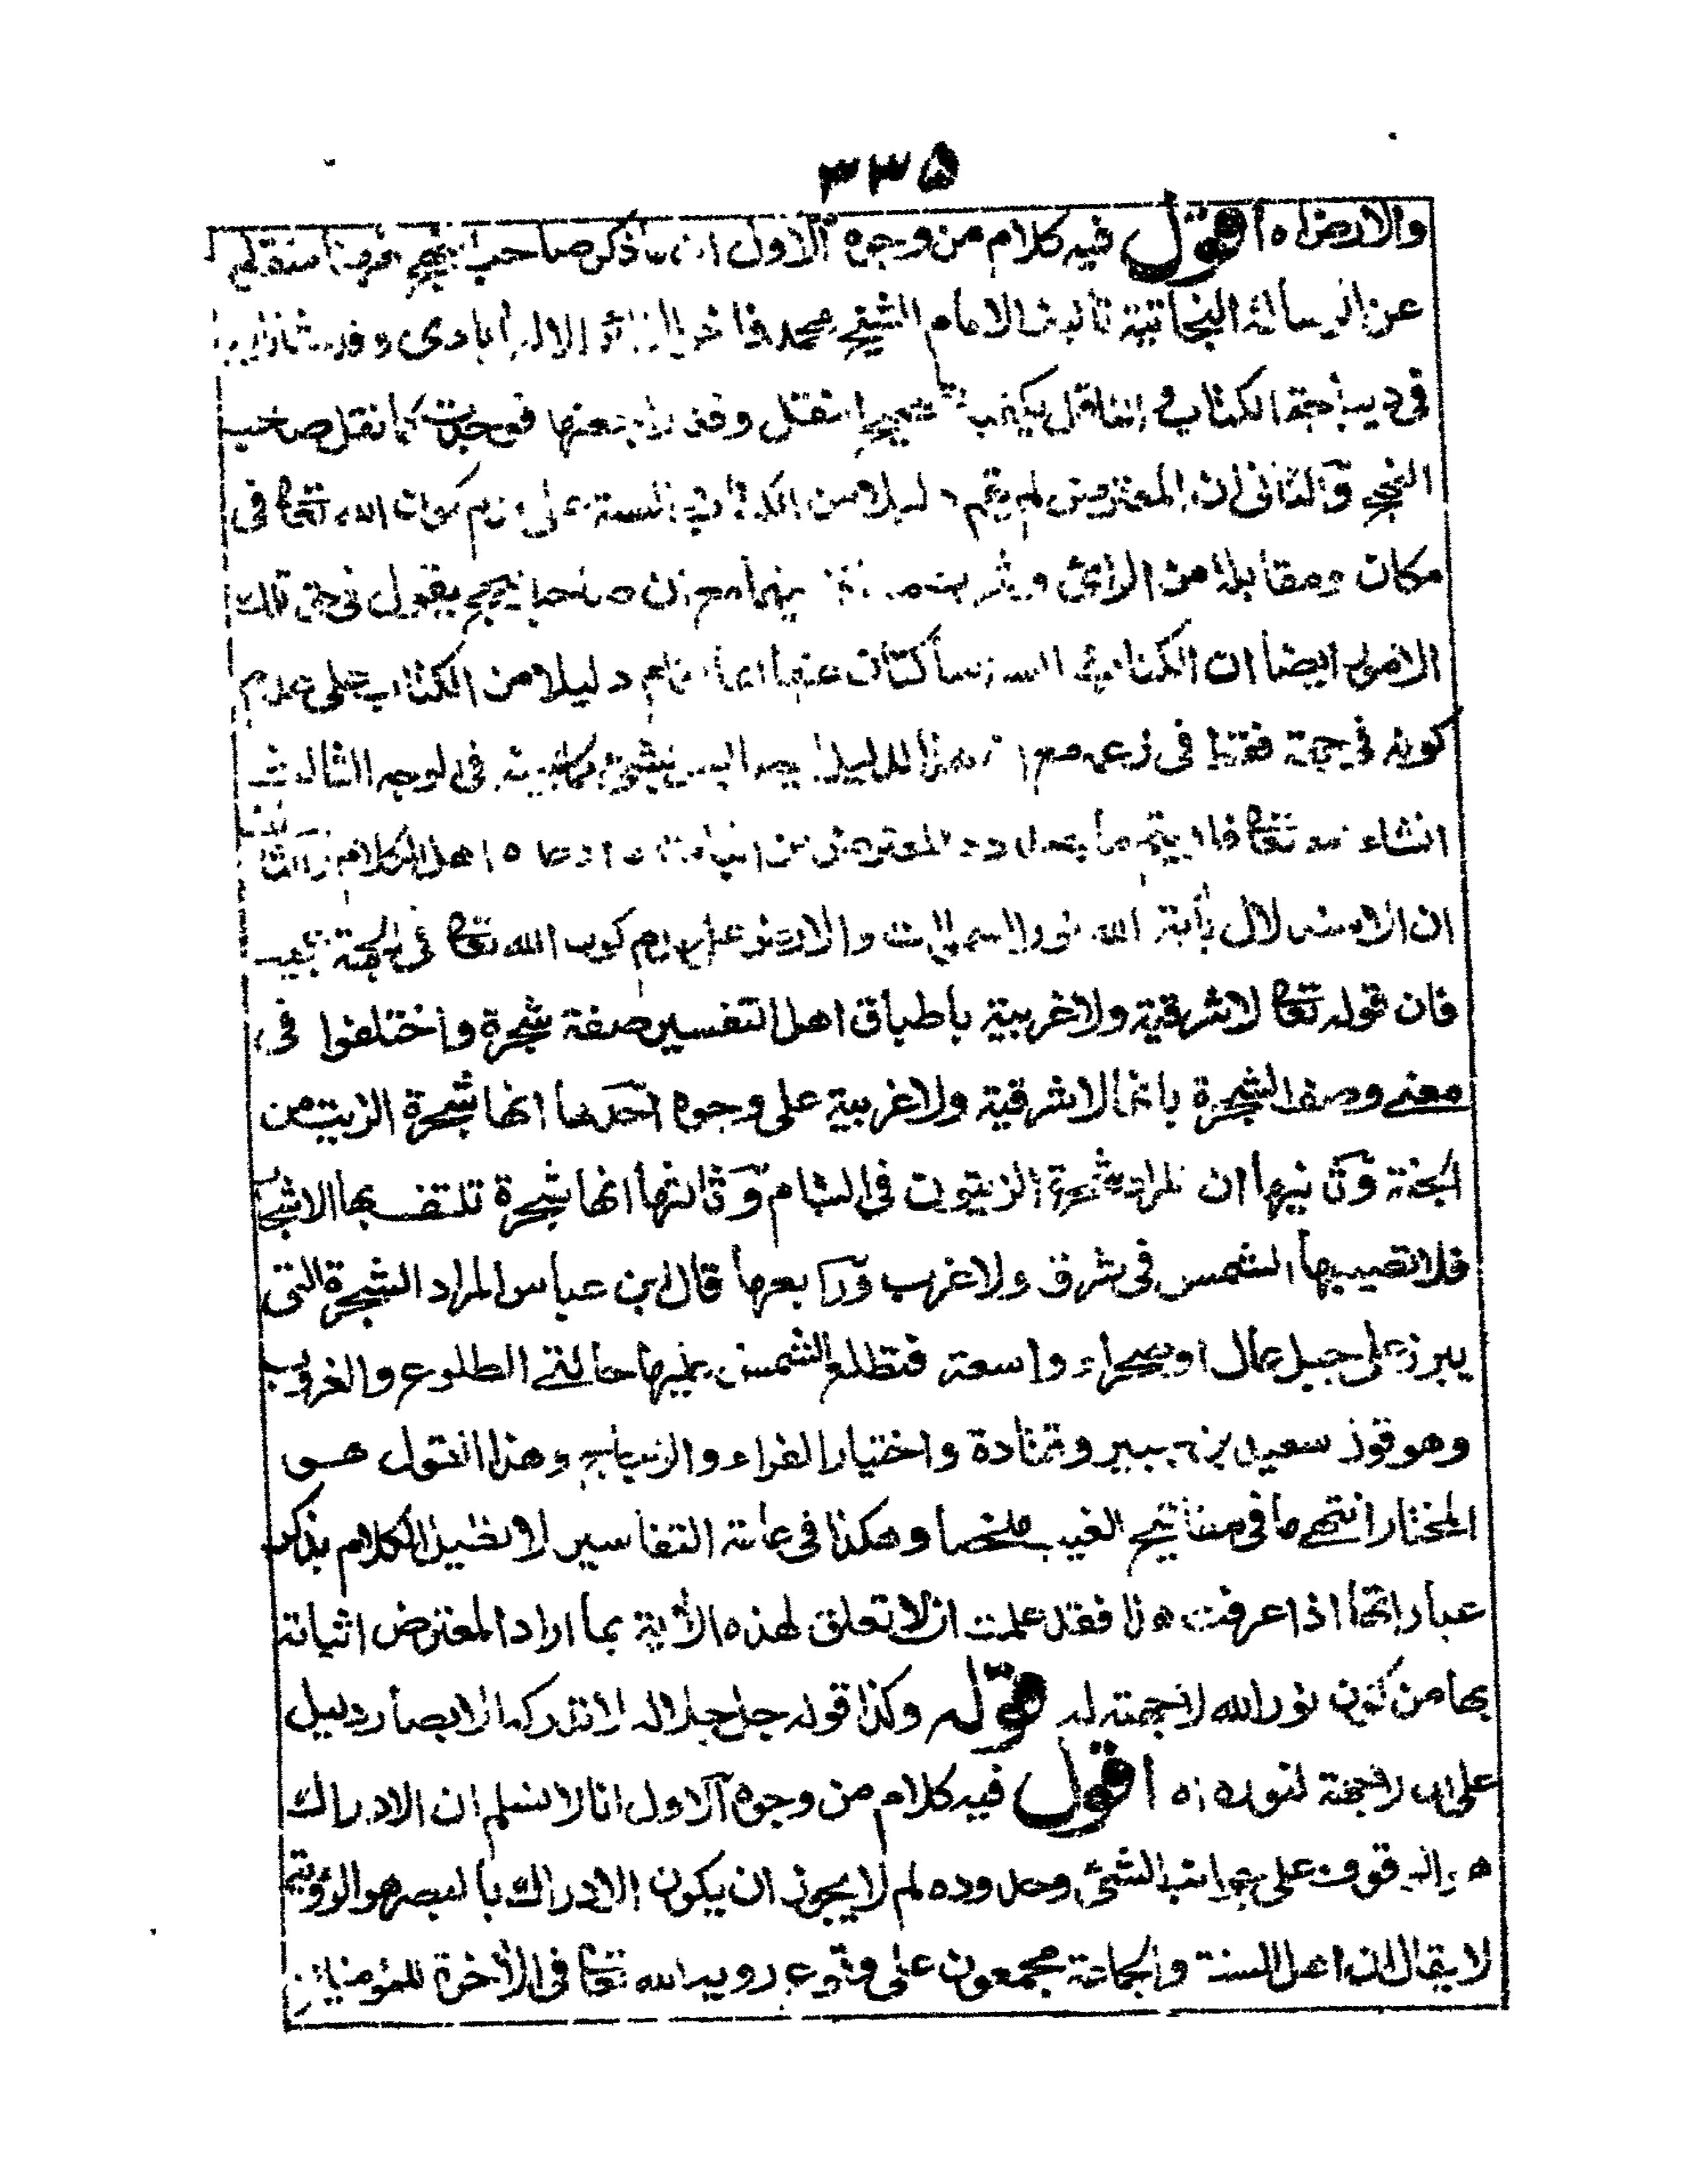 ٣٣٥
والارض اه اقول فيه كلام من وجوه الاول ان ما ذكر صاحب النهج
عن الرسالة النجاتية تأليف الامام الشيخ محمد فاخر الاله آبادى وقد
فى ديباجة الكتاب والناقل يكفيه تصحيح النقل وقد راجعتها فوجدت كما نقل صاحب
النهج والثانى ان المعترض لم يقم دليلا من الكتاب والسنة على عدم كون الله تعالى فى
مكان ومقابلة من الرائى مع ان صاحب النهج يقول فى حق تلك
الامور ايضا ان الكتاب والسنة ساكتان عنها انما اقام دليلا من الكتاب على عدم
كونه فى جهة فقط فى زعمه مع ان هذا الدليل ايضا ليس بشئ كما فى الوجه الثالث
انشاء الله تعالى فلا يتم ما بصدده المعترض من اثبات ما ادعاه اهل الكلام والثالث
ان الاستدلال بأية الله نور السموات والارض على عدم كون الله تعالى فى الجهة
فان قوله تعالى لا شرقية ولا غربية باطباق اهل التفسير صفة شجرة واختلفوا فى
معنى وصف الشجرة بانها لا شرقية ولا غربية على وجوه احدها انها شجرة الزيت من
الجنة وثانيها ان المراد شجرة الزيتون فى الشام وثالثها انها شجرة تلتف بها الاشجار
فلا تصيبها الشمس فى شرق ولا غرب ورابعها قال ابن عباس المراد الشجرة التى
يبرز على جبل عال او صحراء واسعة فتطلع الشمس عليها حالتى الطلوع والغروب
وهو قول سعيد بن جبير وقتادة واختيار الفراء والزجاج وهذا القول هو
المختار انتهى ما فى مفاتيح الغيب ملخصا وهكذا فى عامة التفاسير لا نطيل الكلام بذكر
عباراتها اذا عرفت هذا فقد علمت ان لا تعلق لهذه الأية بما اراد المعترض اثباته
بها من كون نور الله لا جهة له قوله وكذا قوله جل جلاله لا تدركه الابصار دليل
على ان لا جهة لنوره اه اقول فيه كلام من وجوه الاول انا لا نسلم ان الادراك
هو الوقوف على جوانب الشئ وحدوده لم لا يجوز ان يكون الادراك بالبصر هو الرؤية
لا يقال ان اهل السنة والجماعة مجمعون على وقوع روية الله تعالى فى الأخرة للمؤمنين